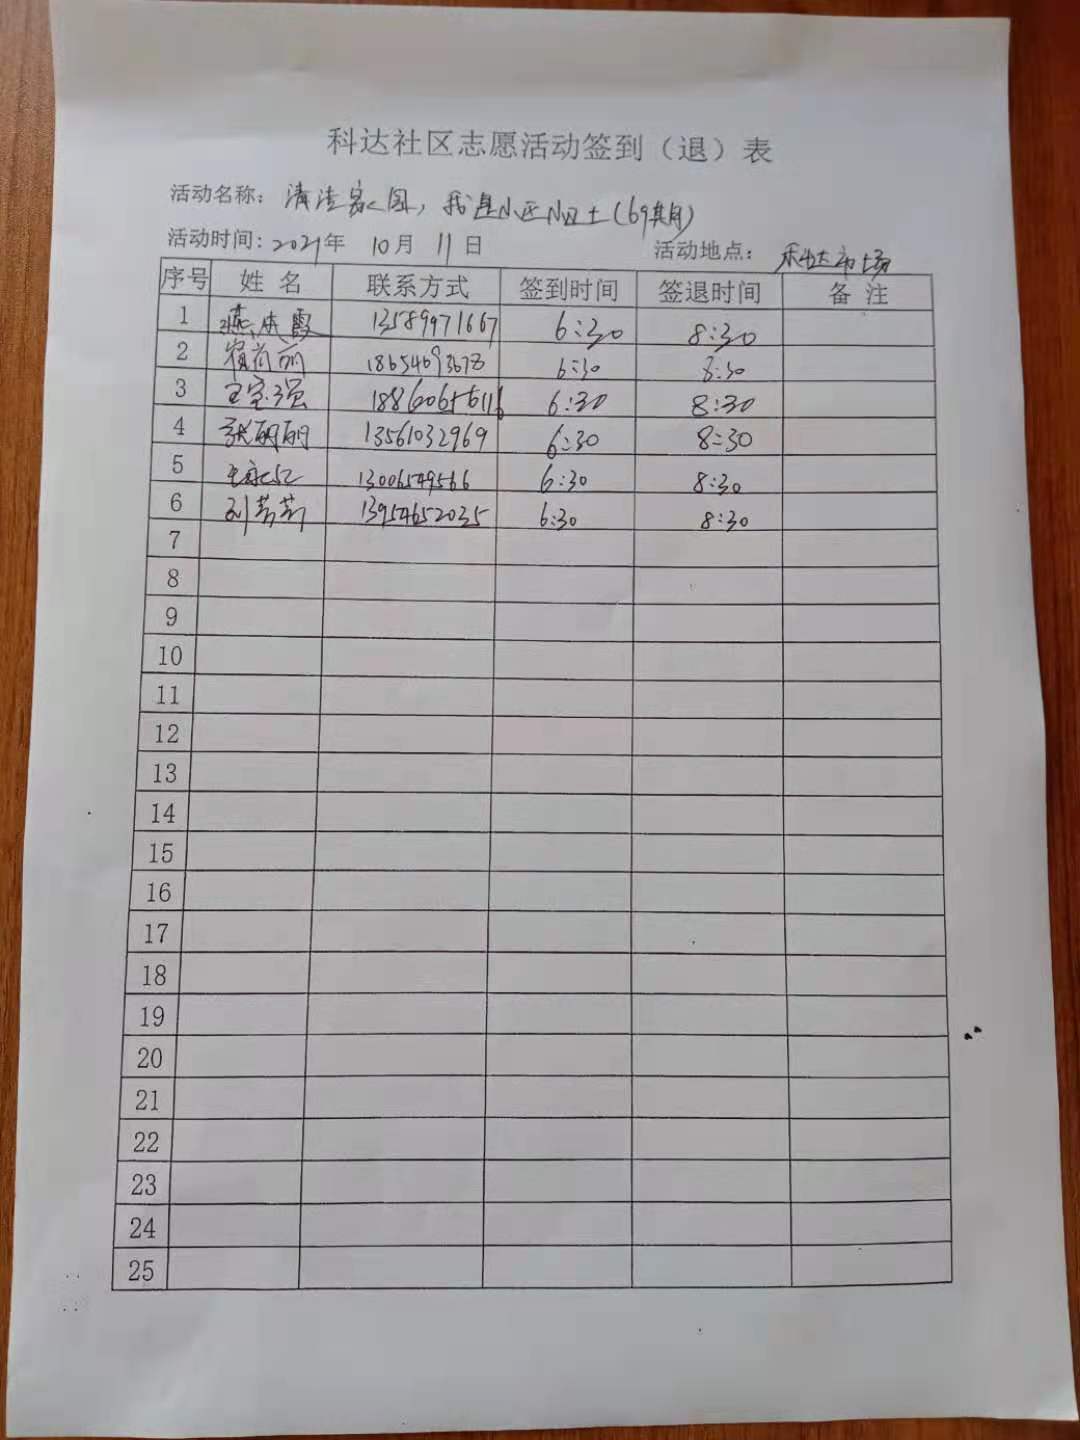 科达社区志愿活动签到（退）表
活动名称：清洁家园，我是小区小卫士（69期）
活动时间：2021年 10月 11日 活动地点：科达市场
序号 姓名 联系方式 签到时间 签退时间 备注
1 燕杰霞 13589971667 6:30 8:30
2 丽 18654693678 6:30 8:30
3 王宝强 18860656116 6:30 8:30
4 张丽丽 13561032969 6:30 8:30
5 王 13006549566 6:30 8:30
6 刘芳芳 13954652035 6:30 8:30
7
8
9
10
11
12
13
14
15
16
17
18
19
20
21
22
23
24
25